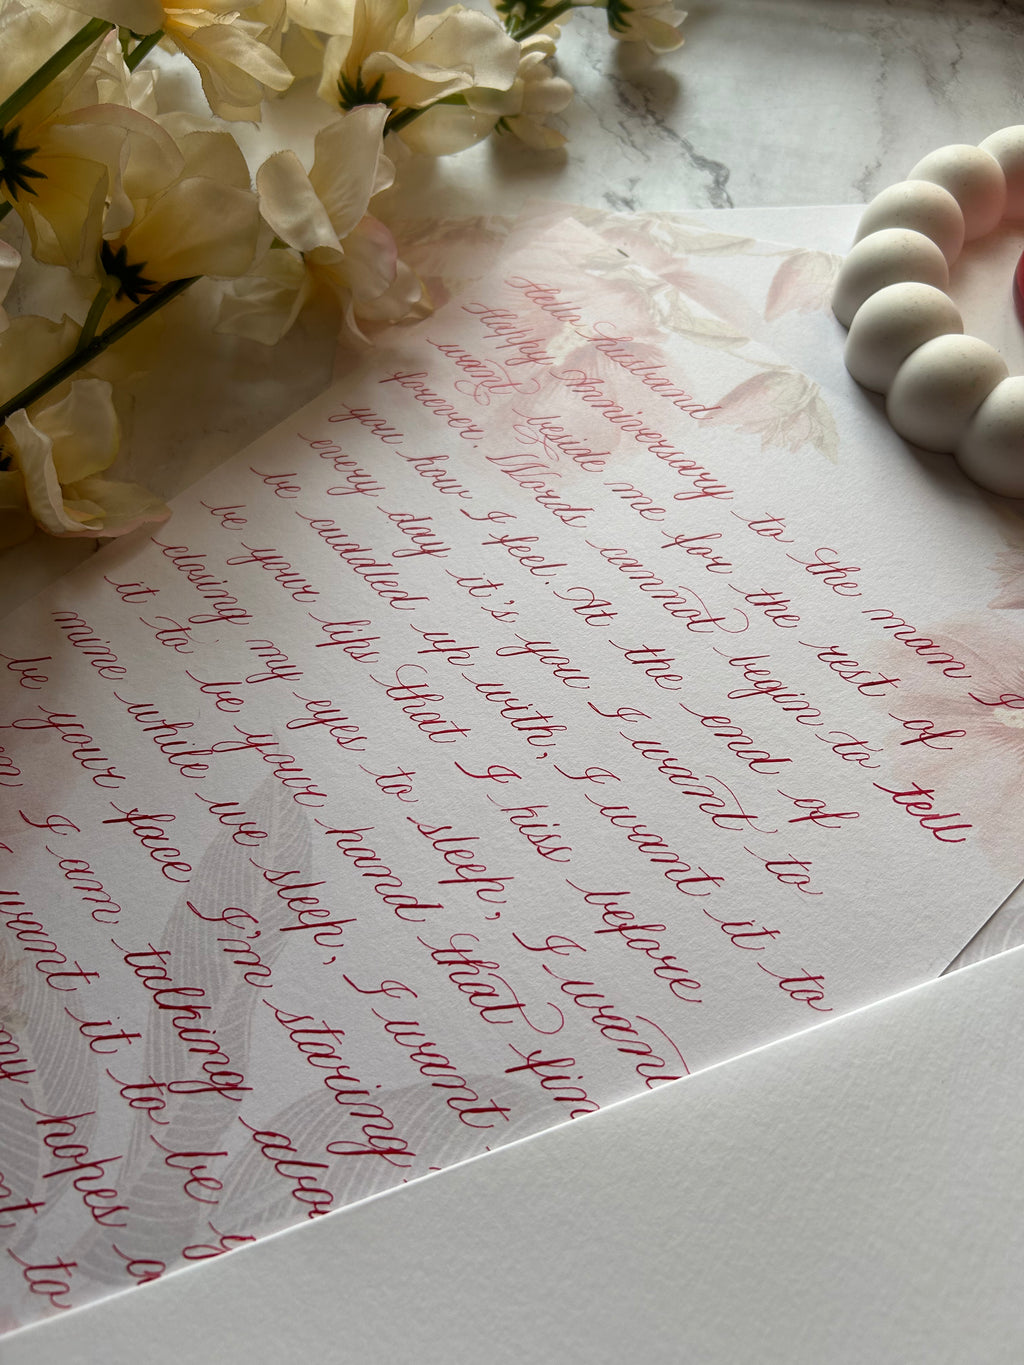 Hello Husband
Happy Anniversary to the man I
want beside me for the rest of
forever. Words cannot begin to tell
you how I feel. At the end of
every day it's you I want to
be cuddled up with, I want it to
be your lips that I kiss before
closing my eyes to sleep, I want
it to be your hand that fin
mine while we sleep, I want
be your face I'm staring
I am talking abo
want it to be y
my hopes a
to